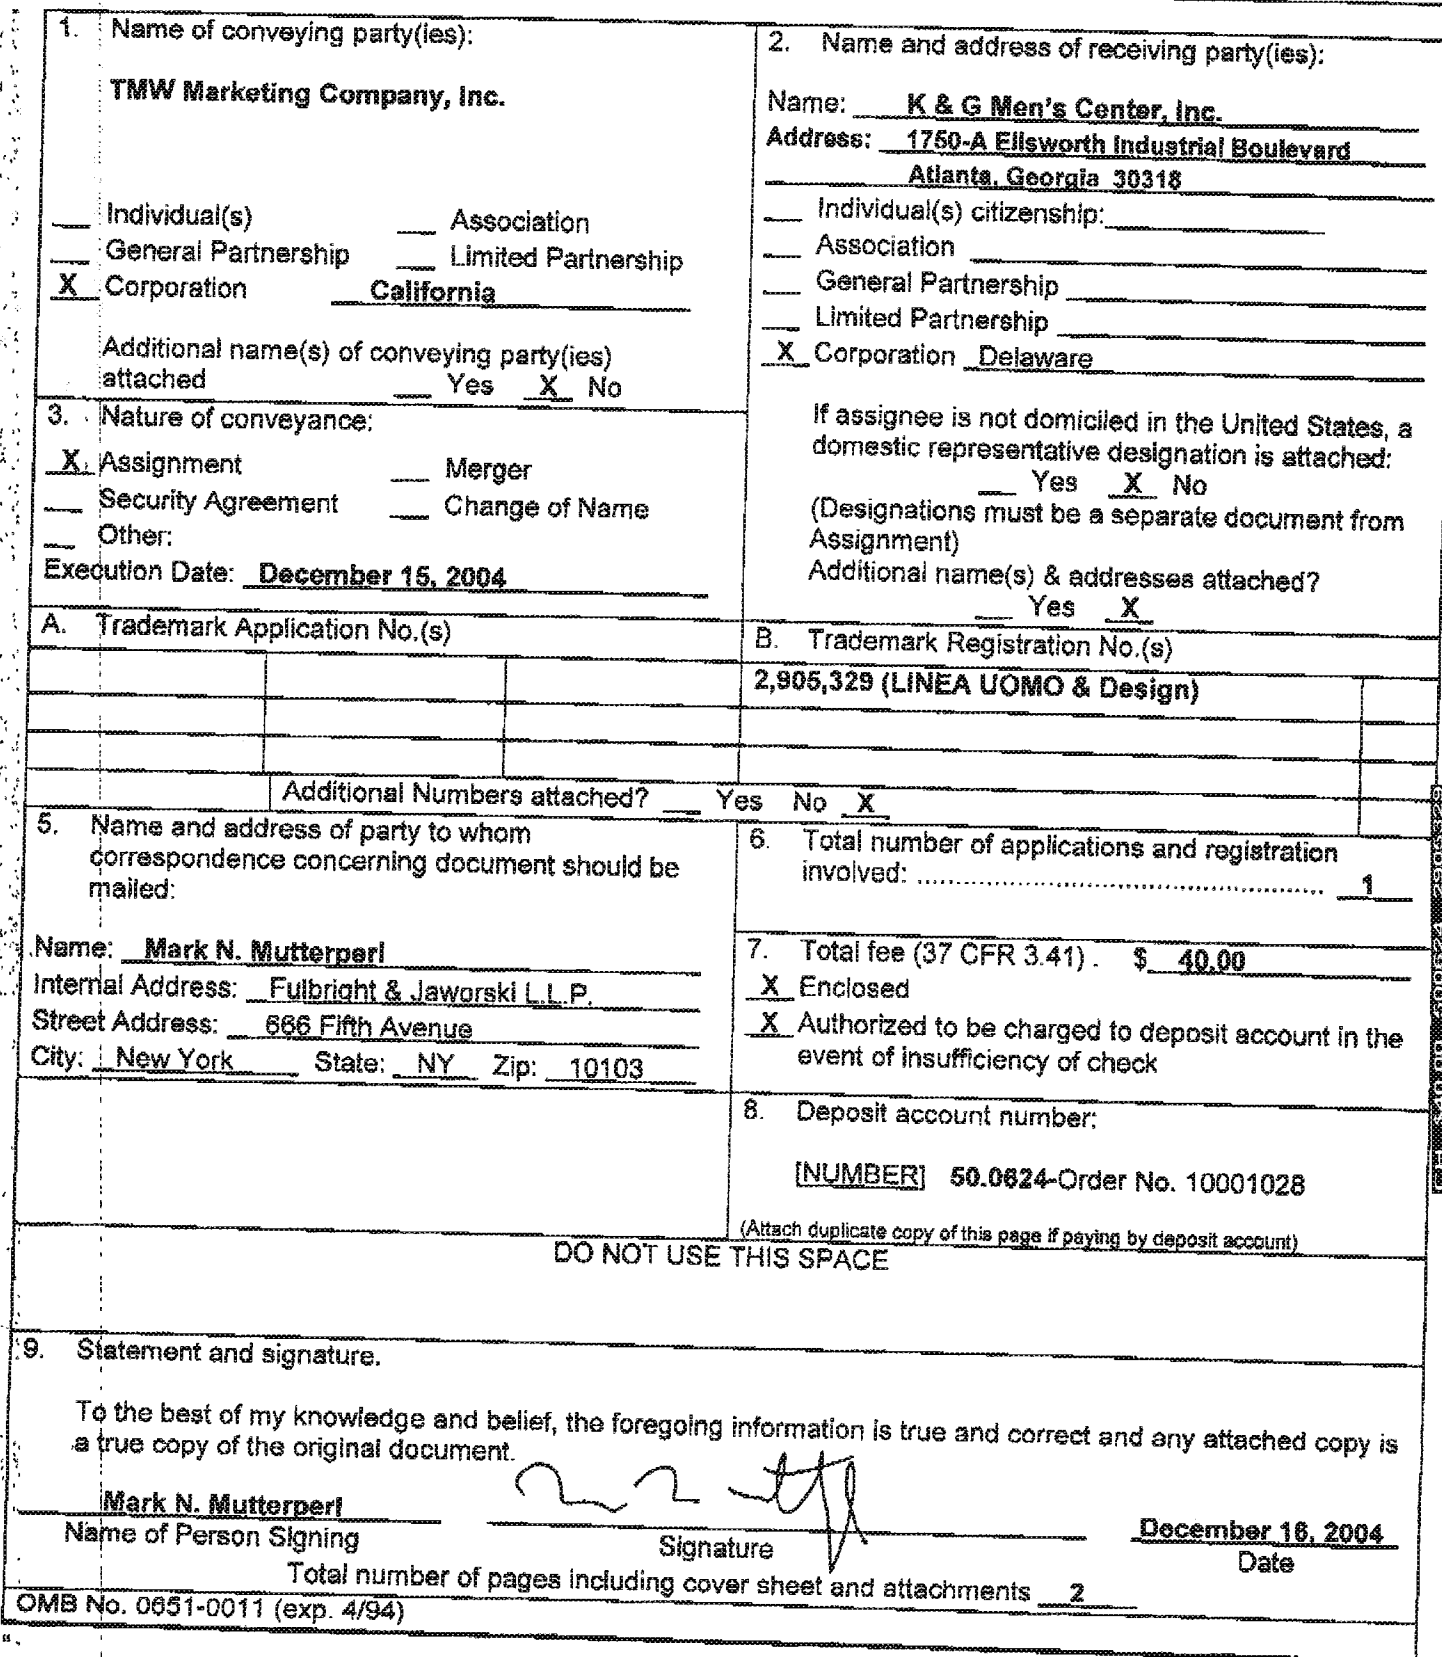 1. Name of conveying party(ies):
TMW Marketing Company, Inc.
__ Individual(s) __ Association
__ General Partnership __ Limited Partnership
X Corporation California
Additional name(s) of conveying party(ies)
attached __ Yes X No
2. Name and address of receiving party(ies):
Name: K & G Men's Center, Inc.
Address: 1750-A Ellsworth Industrial Boulevard
Atlanta, Georgia 30318
__ Individual(s) citizenship:
__ Association
__ General Partnership
__ Limited Partnership
X Corporation Delaware
If assignee is not domiciled in the United States, a
domestic representative designation is attached:
__ Yes X No
(Designations must be a separate document from
Assignment)
Additional name(s) & addresses attached?
__ Yes X
3. Nature of conveyance:
X Assignment __ Merger
__ Security Agreement __ Change of Name
__ Other:
Execution Date: December 15, 2004
A. Trademark Application No.(s)
B. Trademark Registration No.(s)
2,905,329 (LINEA UOMO & Design)
Additional Numbers attached? __ Yes No X
5. Name and address of party to whom
correspondence concerning document should be
mailed:
Name: Mark N. Mutterperl
Internal Address: Fulbright & Jaworski L.L.P.
Street Address: 666 Fifth Avenue
City: New York State: NY Zip: 10103
6. Total number of applications and registration
involved: ........................................................ 1
7. Total fee (37 CFR 3.41) . $ 40.00
X Enclosed
X Authorized to be charged to deposit account in the
event of insufficiency of check
8. Deposit account number:
[NUMBER] 50.0624-Order No. 10001028
(Attach duplicate copy of this page if paying by deposit account)
DO NOT USE THIS SPACE
9. Statement and signature.
To the best of my knowledge and belief, the foregoing information is true and correct and any attached copy is
a true copy of the original document.
Mark N. Mutterperl December 16, 2004
Name of Person Signing Signature Date
Total number of pages including cover sheet and attachments 2
OMB No. 0651-0011 (exp. 4/94)